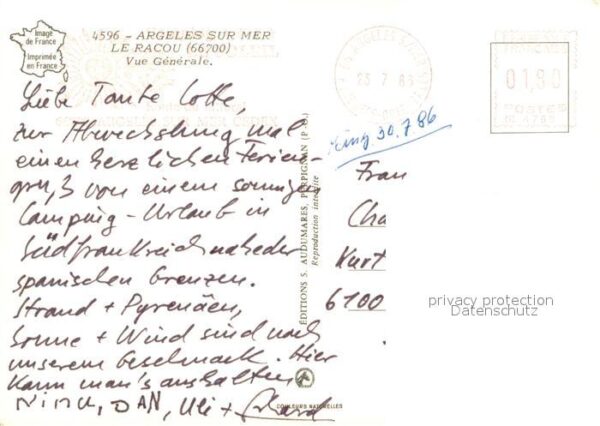 Image
de France
Imprimée
en France
4596 - ARGELES SUR MER
LE RACOU (66700)
Vue Générale.
Liebe Tante Lotte,
zur Abwechslung mal
einen herzlichen Ferien-
gruß von einem sonnigen
Camping-Urlaub in
Südfrankreich nahe der
spanischen Grenzen.
Strand + Pyrenäen,
Sonne + Wind sind nach
unserem Geschmack. Hier
kann man's aushalten
DAN, Uli +
ÉDITIONS S. AUDUMARES, PERPIGNAN (P. O.)
Reproduction interdite
COULEURS NATURELLES
25 7 86
01,80
POSTES
30.7.86
Frau
Cha
Kurt
6100
privacy protection
Datenschutz